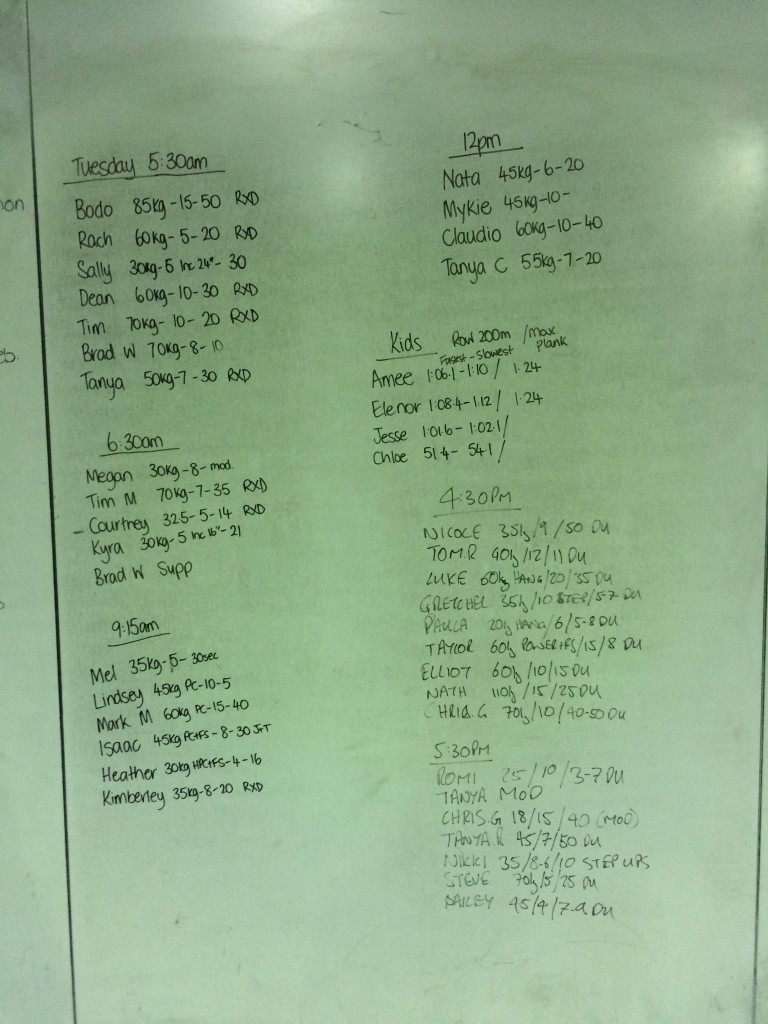 non
eb
Tuesday 5:30am
Bodo 85kg-15-50 RXD
Rach 60kg-5-20 RXD
Sally 30kg-5 Inc 24"-30
Dean 60kg-10-30 RXD
Tim 70kg-10-20 RXD
Brad W 70kg-8-10
Tanya 50kg-7-30 RXD
6:30am
Megan 30kg-8-mod.
Tim M 70kg-7-35 RXD
- Courtney 32.5-5-14 RXD
Kyra 30kg-5 Inc 16"-21
Brad W Supp
9:15am
Mel 35kg-5-30sec
Lindsey 45kg PC-10-5
Mark M 60kg PC-15-40
Isaac 45kg PC+FS-8-30 J+T
Heather 30kg HPC+FS-4-16
Kimberley 35kg-8-20 RXD
12pm
Nata 45kg-6-20
Mykie 45kg-10-
Claudio 60kg-10-40
Tanya C 55kg-7-20
Kids Row 200m /max plank
Fastest-Slowest
Amee 1:06.1-1:10/ 1.24
Elenor 1:08.4-1.12/ 1.24
Jesse 1:01.6-1:02.1/
Chloe 51.4-54.1/
4:30PM
NICOLE 35kg/9/50 DU
TOM.R 40kg/12/11 DU
LUKE 60kg HANG/20/35 DU
GRETCHEL 35kg/10 STEP/5-7 DU
PAULA 20kg HANG/6/5-8 DU
TAYLOR 60kg POWER+FS/15/8 DU
ELLIOT 60kg/10/15 DU
NATH 110kg/15/25 DU
CHRIS.G 70kg/10/40-50 DU
5:30PM
ROMI 25/10/3-7 DU
TANYA MOD
CHRIS.G 18/15/40 (MOD)
TANYA.R 45/7/50 DU
NIKKI 35/8-6/10 STEP UPS
STEVE 70kg/5/25 DU
BAILEY 45/4/7-9 DU